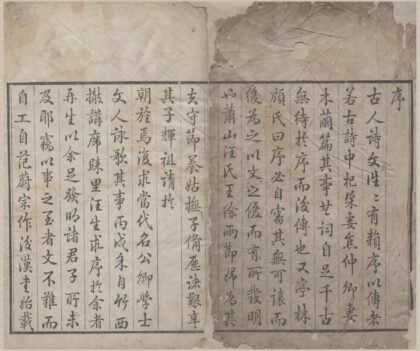 序
古人詩文往々有賴序以傳者
若古詩中杞梁妻焦仲卿妻
木蘭篇其事其詞自足千古
無待於序而後傳也又亭林
顧氏曰序必自審其無可議而
後為之以文之優而有所發明
也蕭山汪氏王徐兩節婦為其
夫守節養姑撫子備歷諸艱辛
其子輝祖請於
朝旌焉復求當代名公卿學士
文人詠歌其事丙戌年自竹西
撤講席里汪生求序於余者
再生以余足發明諸君子所未
及耶竊以事之至者文不難而
自工自范蔚宗作後漢書始載